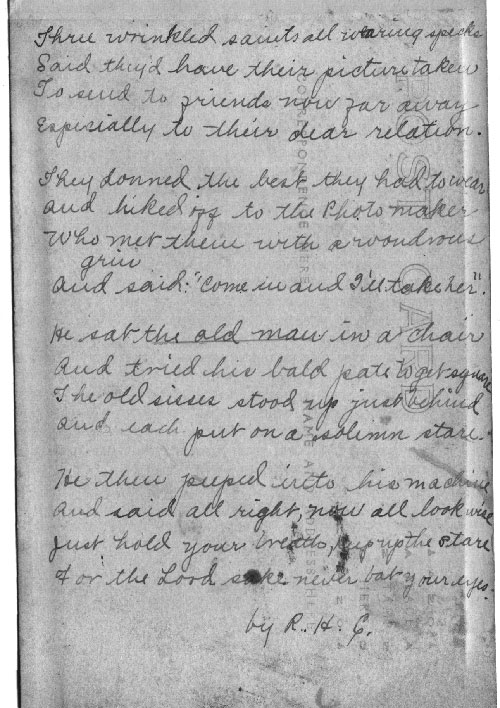 Three wrinkled saints all wearing specs
Said they'd have their picture taken
To send to friends now far away
Especially to their dear relation.
They donned the best they had to wear
And hiked off to the Photo maker
Who met them with a wondrous
grin
And said: "Come in and I'll take her".
He sat the old man in a chair
And tried his bald pate to get square
The old sisses stood up just behind
And each put on a solimn stare.
He then peeped into his machine
And said all right, now all look wise
Just hold your breath, keep up the stare
For the Lord sake never bat your eyes.
by R. H. C.
POST CARD
CORRESPONDENCE HERE
NAME AND ADDRESS HERE